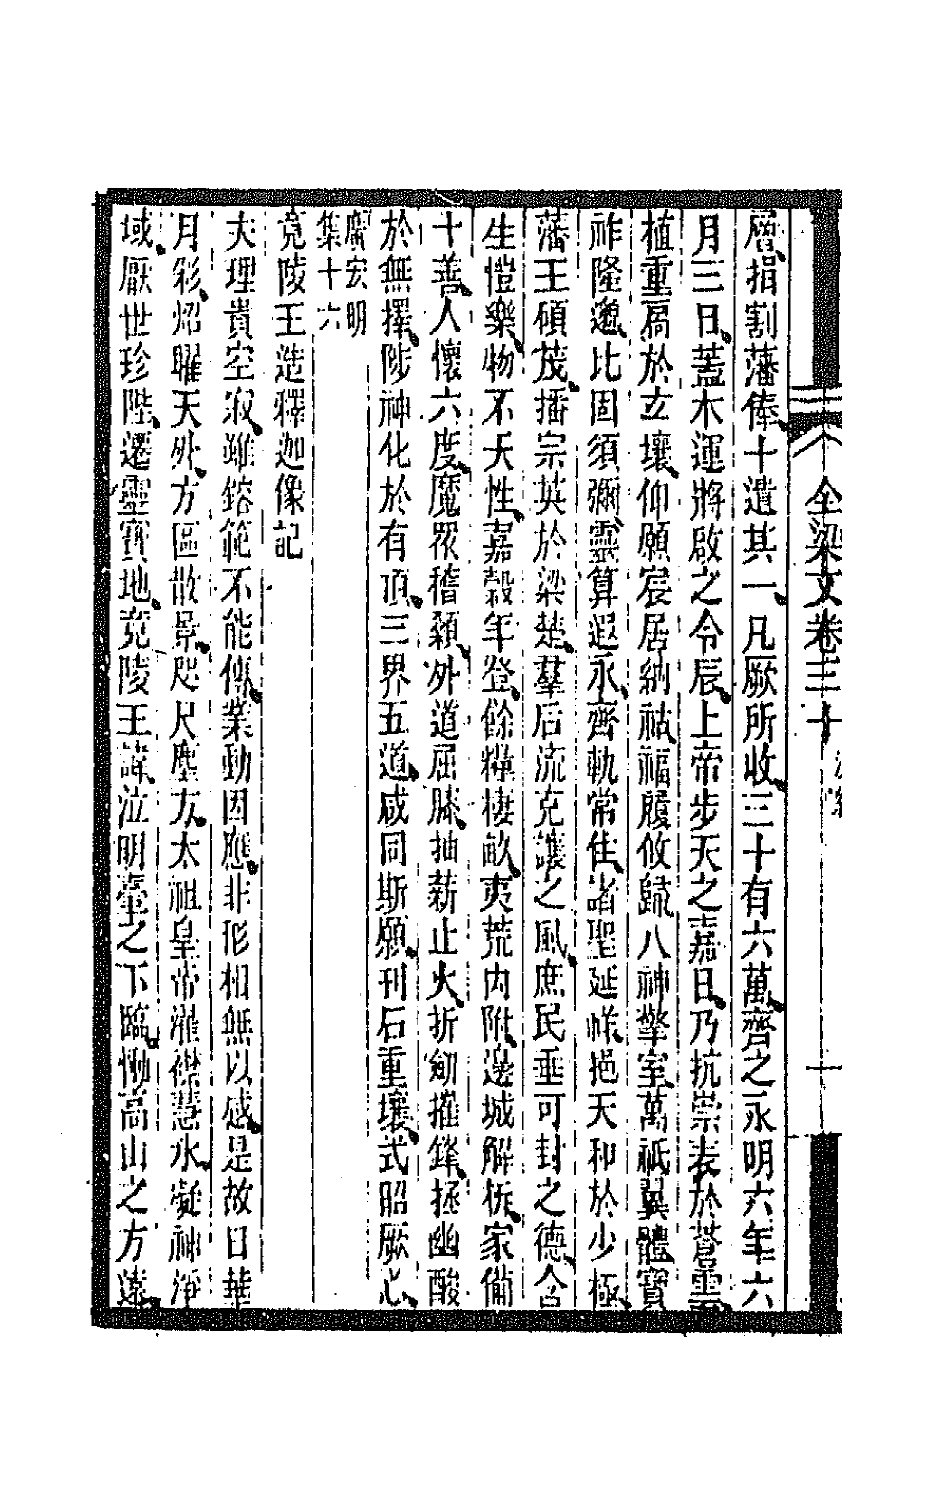 全梁文卷三十
十
層捐割藩俸十遺其一凡厥所收三十有六萬齊之永明六年六
月三日蓋木運將啟之令辰上帝步天之嘉日乃抗崇表於蒼雲
植重扃於玄壤仰願宸居納祜福履攸歸八神擎室萬祇翼體寶
祚隆邈比固須彌靈算遐永齊軌常住諸聖延帷挹天和於少極
藩王碩茂播宗英於梁楚羣后流克讓之風庶民垂可封之德含
生愷樂物不夭性嘉穀年登餘糧棲畝夷荒內附邊城解柝家備
十善人懷六度魔眾稽顙外道屈膝抽薪止火折劒摧鋒拯幽酸
於無擇陟神化於有頂三界五道咸同斯願刊石重壤式昭厥心
廣宏明
集十六
竟陵王造釋迦像記
夫理貴空寂雖鎔範不能傳業動因應非形相無以感是故日華
月彩炤曜天外方區散景咫尺塵方太祖皇帝濯襟慧水凝神淨
域厭世珍陛遷靈寶地竟陵王諱泣明臺之下臨慟高山之方遠